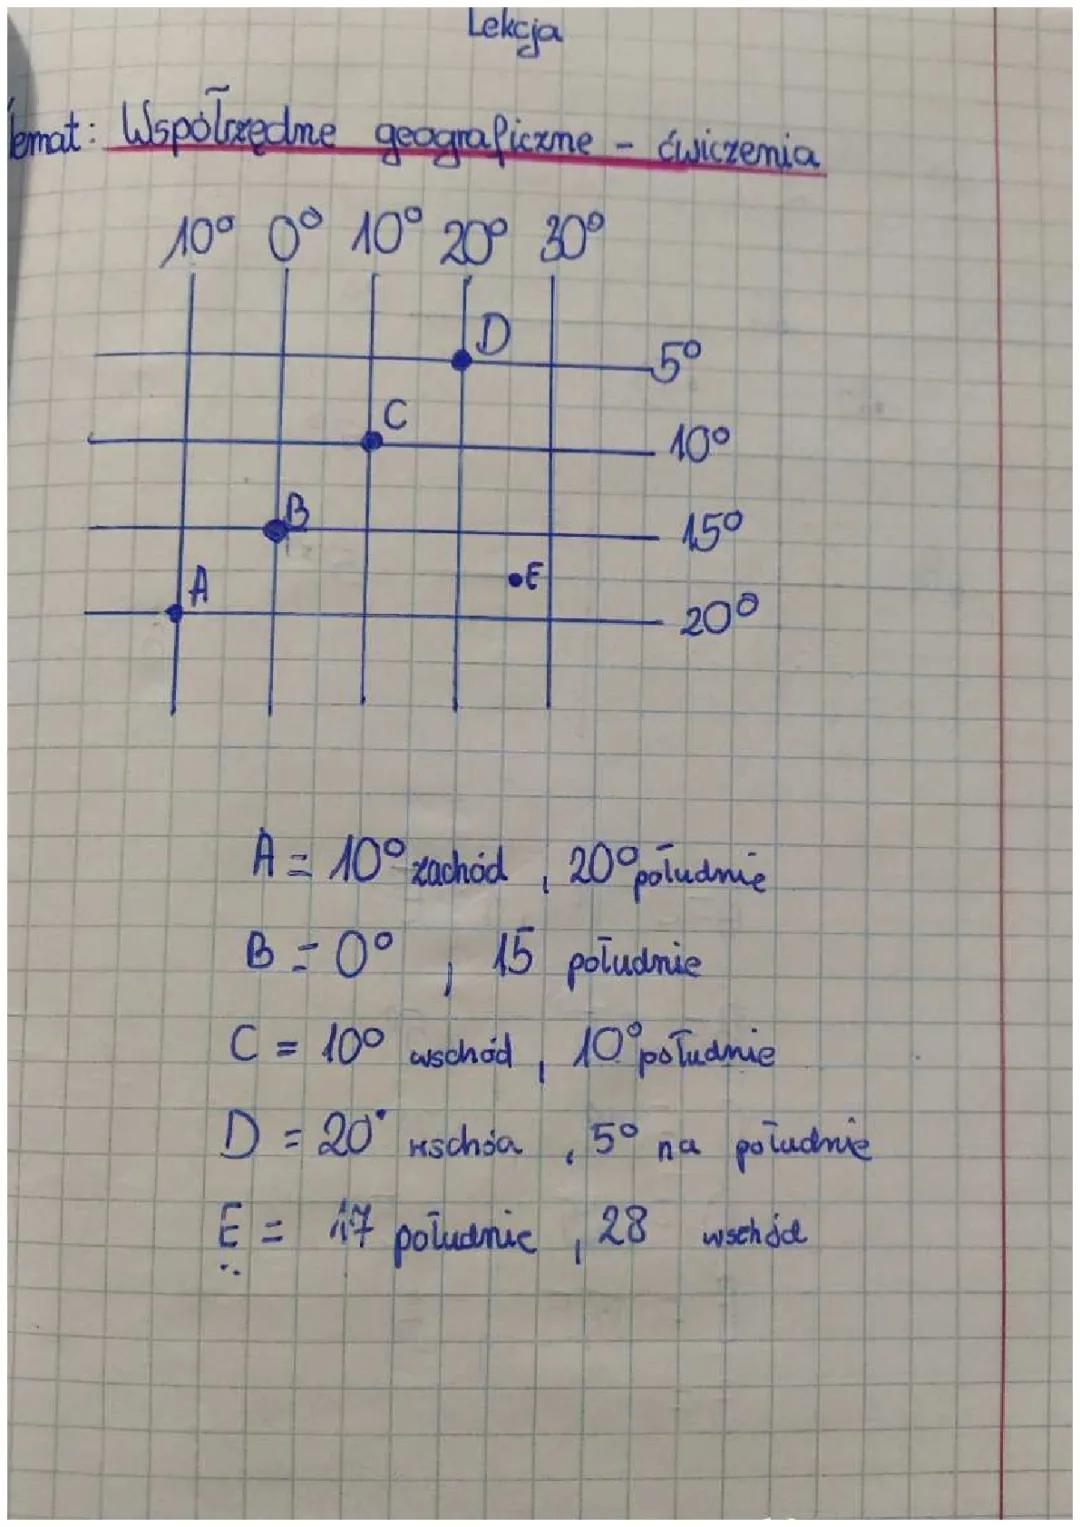 Lekcja
Temat: Współrzędne geograficzne - ćwiczenia
10° 0° 10° 20° 30°
D
5°
C
10°
B
15°
E
A
20°
A = 10° zachód , 20° południe
B = 0° , 15 południe
C = 10° wschód , 10° południe
D = 20° wschód , 5° na południe
E = 17 południe , 28 wschód